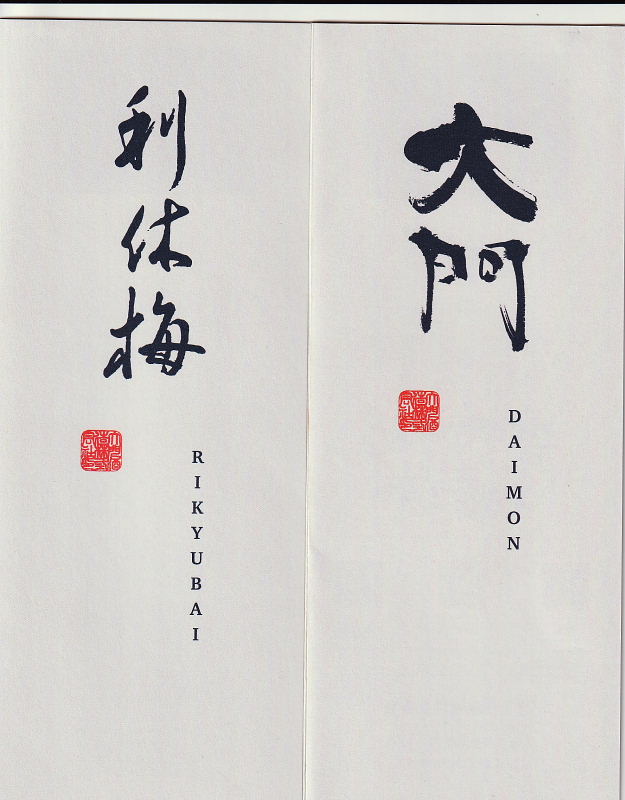 利休梅
RIKYUBAI
大門
DAIMON